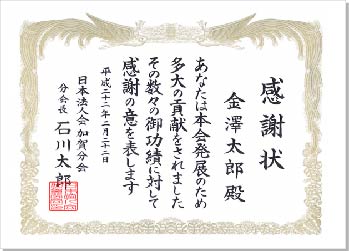 感謝状
金澤太郎殿
あなたは本会発展のため
多大の貢献をされました
その数々の御功績に対して
感謝の意を表します
平成二十二年二月二十二日
日本法人会加賀分会
分会長 石川太郎